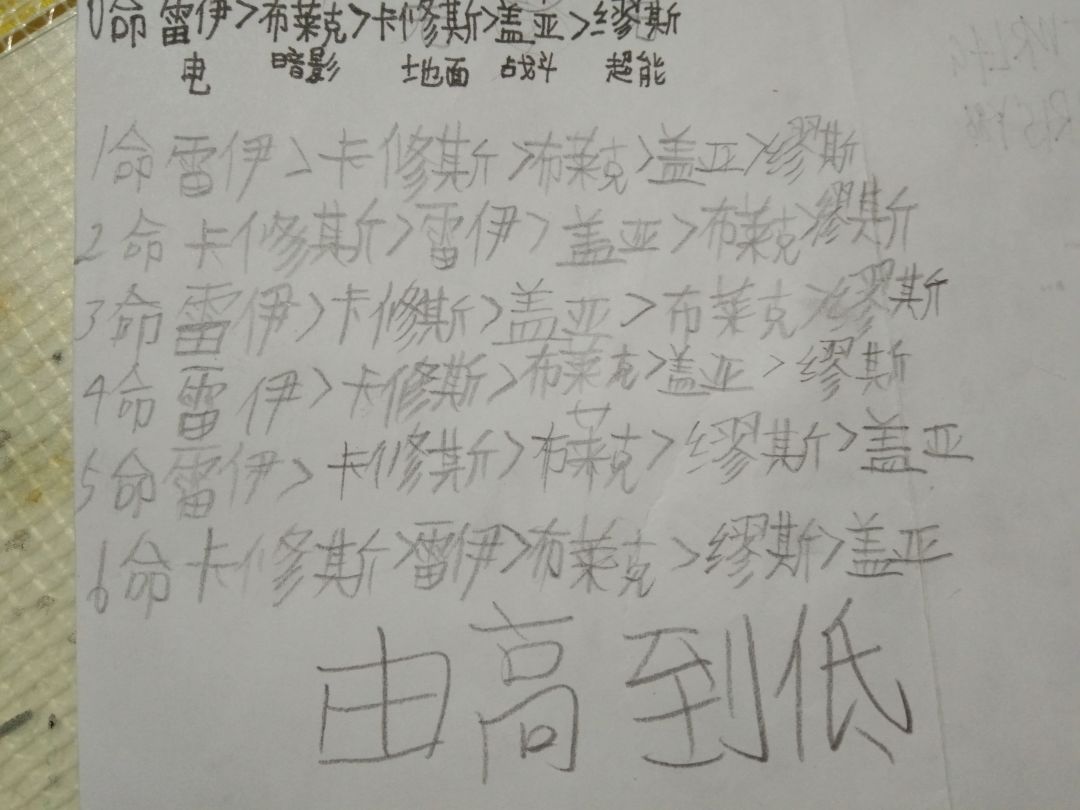 0命 雷伊>布莱克>卡修斯>盖亚>缪斯
电 暗影 地面 战斗 超能
1命 雷伊>卡修斯>布莱克>盖亚>缪斯
2命 卡修斯>雷伊>盖亚>布莱克>缪斯
3命 雷伊>卡修斯>盖亚>布莱克>缪斯
4命 雷伊>卡修斯>布莱克>盖亚>缪斯
5命 雷伊>卡修斯>布莱克>缪斯>盖亚
6命 卡修斯>雷伊>布莱克>缪斯>盖亚
由高到低